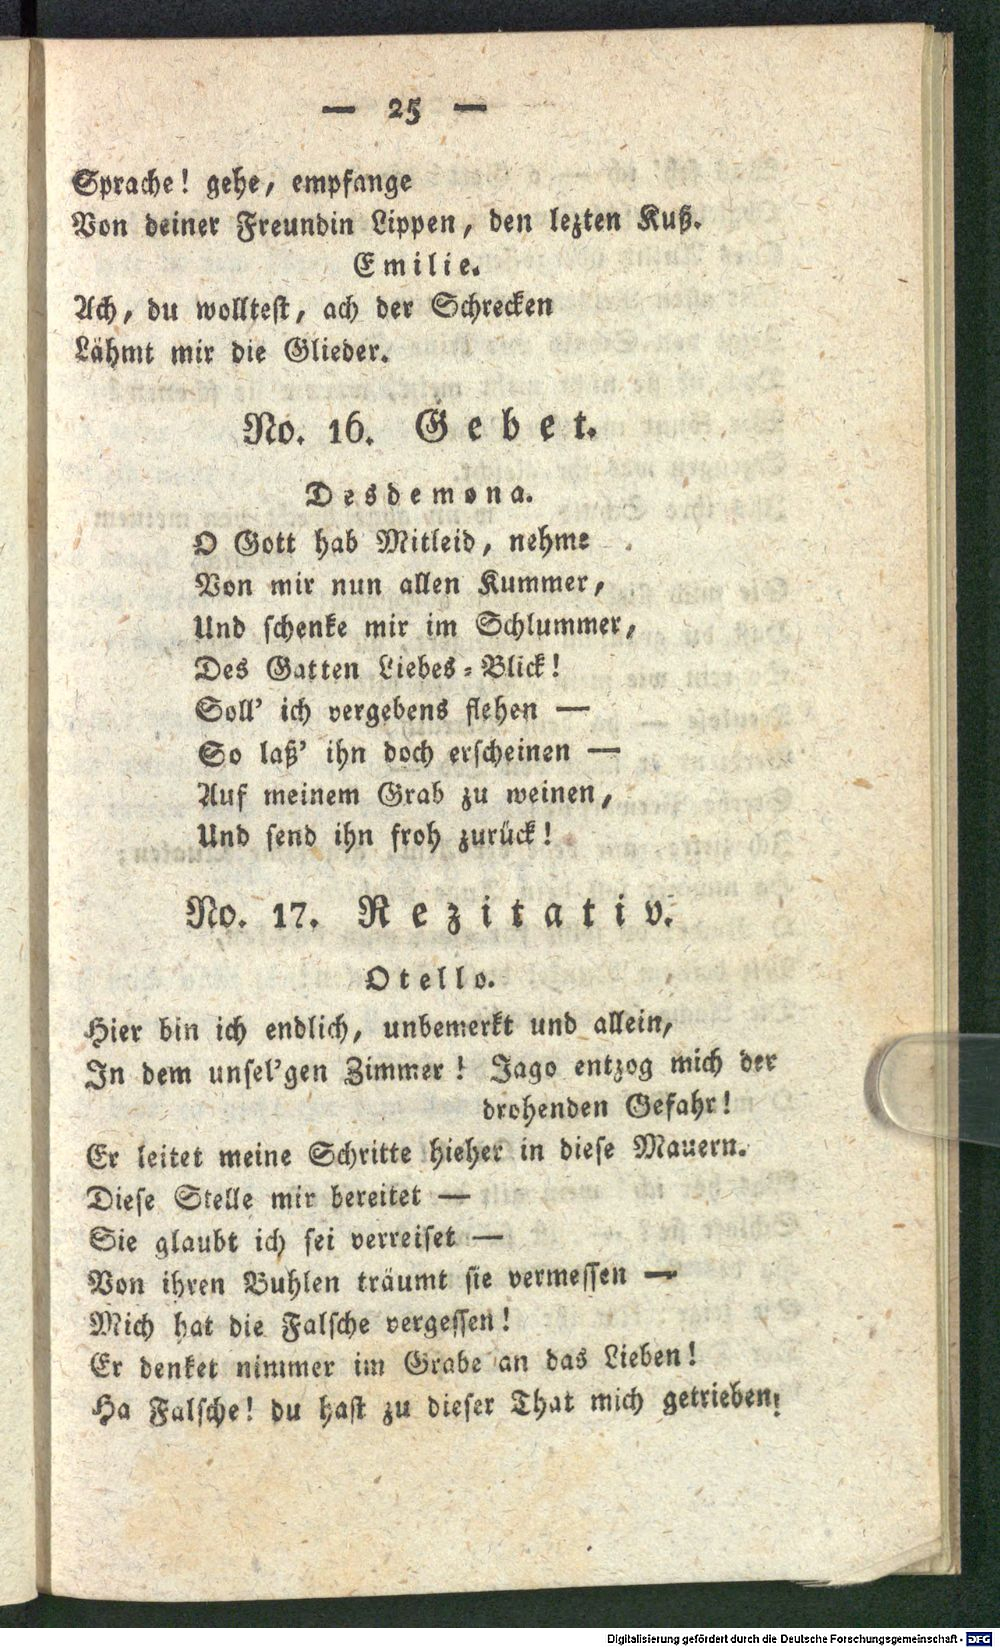 — 25 —
Sprache! gehe, empfange
Von deiner Freundin Lippen, den lezten Kuß.
Emilie.
Ach, du wolltest, ach der Schrecken
Lähmt mir die Glieder.
No. 16. Gebet.
Desdemona.
O Gott hab Mitleid, nehme
Von mir nun allen Kummer,
Und schenke mir im Schlummer,
Des Gatten Liebes-Blick!
Soll' ich vergebens flehen —
So laß' ihn doch erscheinen —
Auf meinem Grab zu weinen,
Und send ihn froh zurück!
No. 17. Rezitativ.
Otello.
Hier bin ich endlich, unbemerkt und allein,
In dem unsel'gen Zimmer! Jago entzog mich der
drohenden Gefahr!
Er leitet meine Schritte hieher in diese Mauern.
Diese Stelle mir bereitet —
Sie glaubt ich sei verreiset —
Von ihren Buhlen träumt sie vermessen —
Mich hat die Falsche vergessen!
Er denket nimmer im Grabe an das Lieben!
Ha Falsche! du hast zu dieser That mich getrieben!
Digitalisierung gefördert durch die Deutsche Forschungsgemeinschaft - DFG